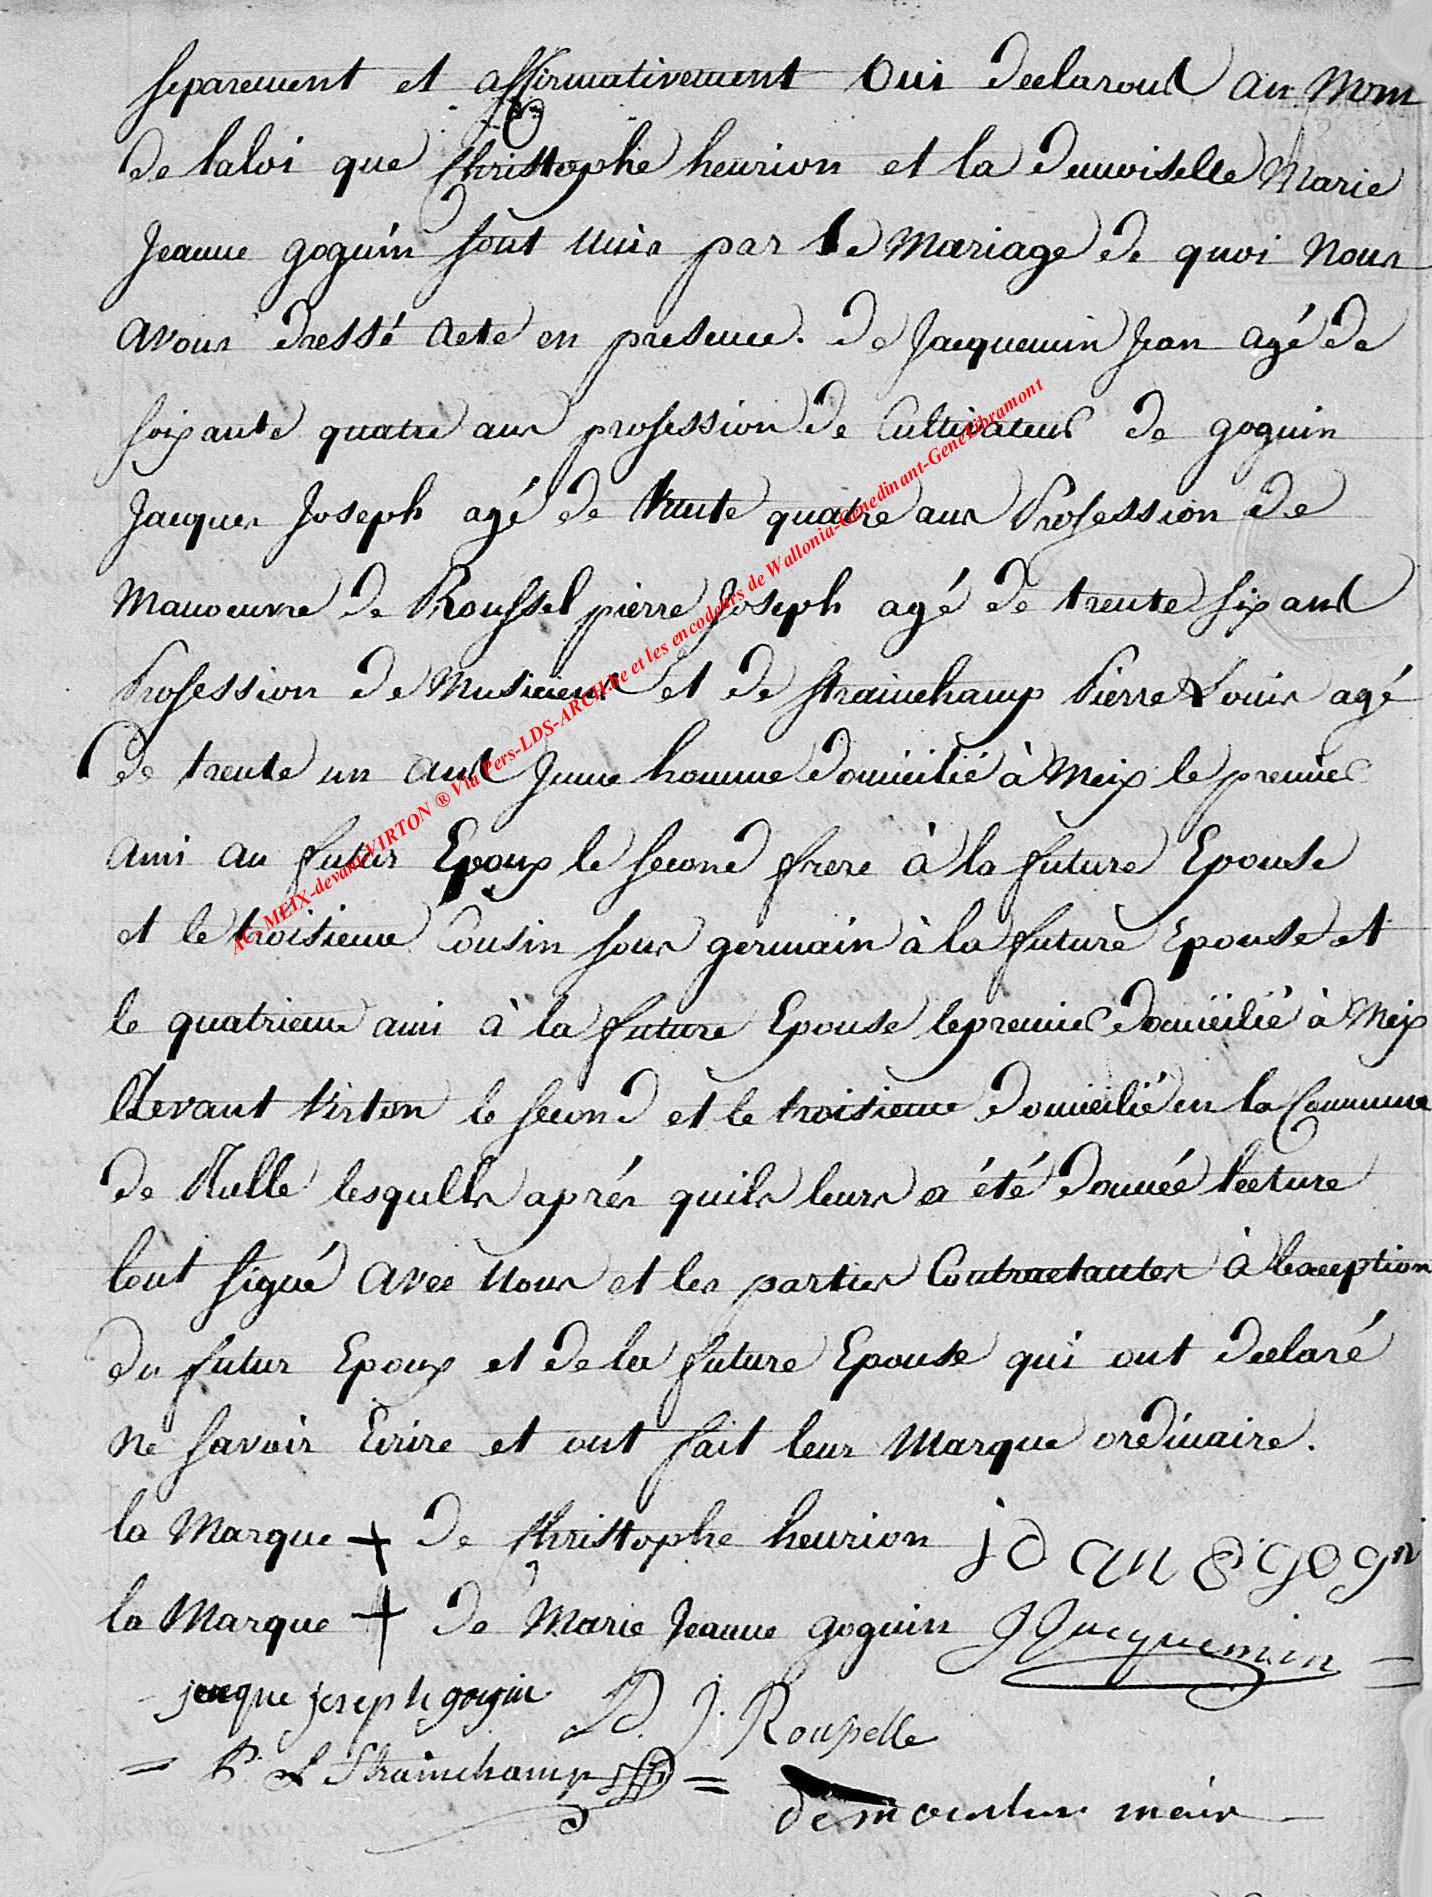 separement et affirmativement Oui declarons au Nom
de laloi que Christtophe heurion et la demoiselle Marie
Jeanne goguin sont Unis par le Mariage de quoi Nous
avons dressé acte en presence. de Jacquemin Jean agé de
soixante quatre ans profession de Cultivateur de goguin
Jacques Joseph agé de trente quatre ans Profession de
Manoeuvre de Roussel pierre Joseph agé de trente six ans
Profession de Musicien et de strainchamp Pierre Louis agé
de trente un ans Jeune homme domicilié à Meix le premier
ami au futur Epoux le second frere à la future Epouse
et le troisieme Cousin sous germain à la future Epouse et
le quatrieme ami à la future Epouse le premier domicilié à Meix
Devant Virton le second et le troisieme domicilié en la Commune
de Rulle lesquells aprés quils leurs a été donnée lecture
lont signé avec Nous et les parties Contractantes à lexception
du futur Epoux et de la future Epouse qui ont declaré
ne savoir Ecrire et ont fait leur Marque ordinaire.
la Marque + de Christtophe heurion
la Marque + de Marie Jeanne goguin J Jacquemin
jacque joseph goguin
P. J. Roupelle
P. L Strainchamp
demouslier mair
AC. MEIX-devant-VIRTON ® Via Pers-LDS-ARCH.be et les encodeurs de Wallonia-Genedinant-GeneLibramont